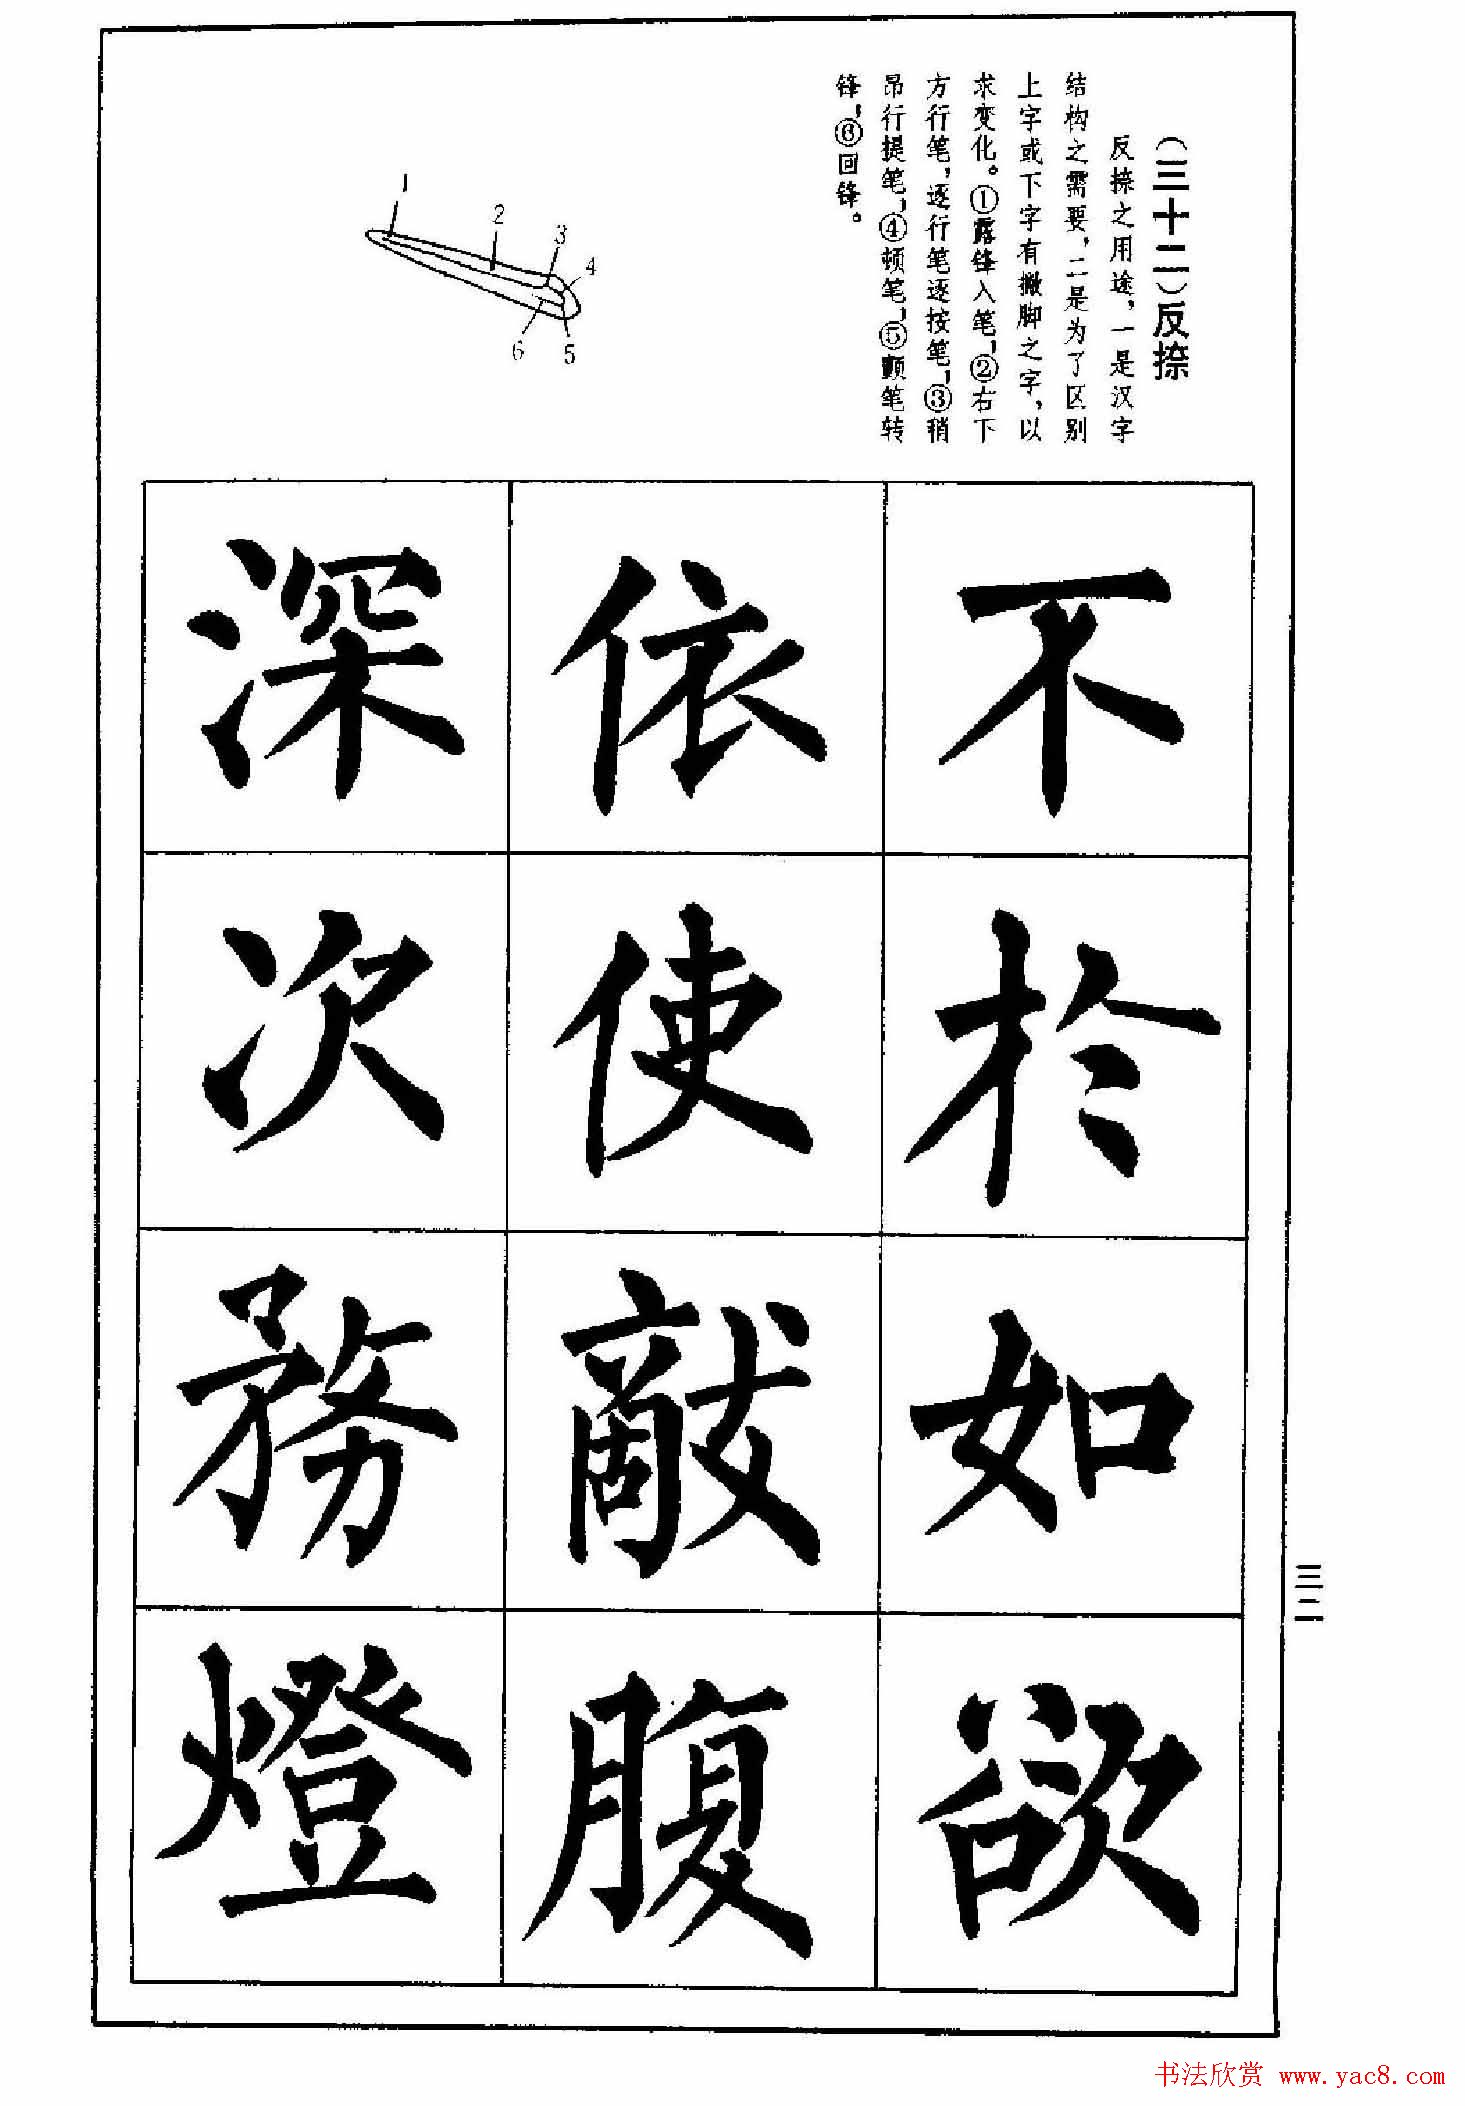 (三十二)反捺
反捺之用途，一是汉字
结构之需要，二是为了区别
上字或下字有撇脚之字，以
求变化。①露锋入笔，②右下
方行笔，逐行笔逐按笔，③稍
昂行提笔，④顿笔，⑤颤笔转
锋，⑥回锋。
1
2
3
4
5
6
不
於
如
欲
依
使
敵
腹
深
次
務
燈
三二
书法欣赏 www.yac8.com